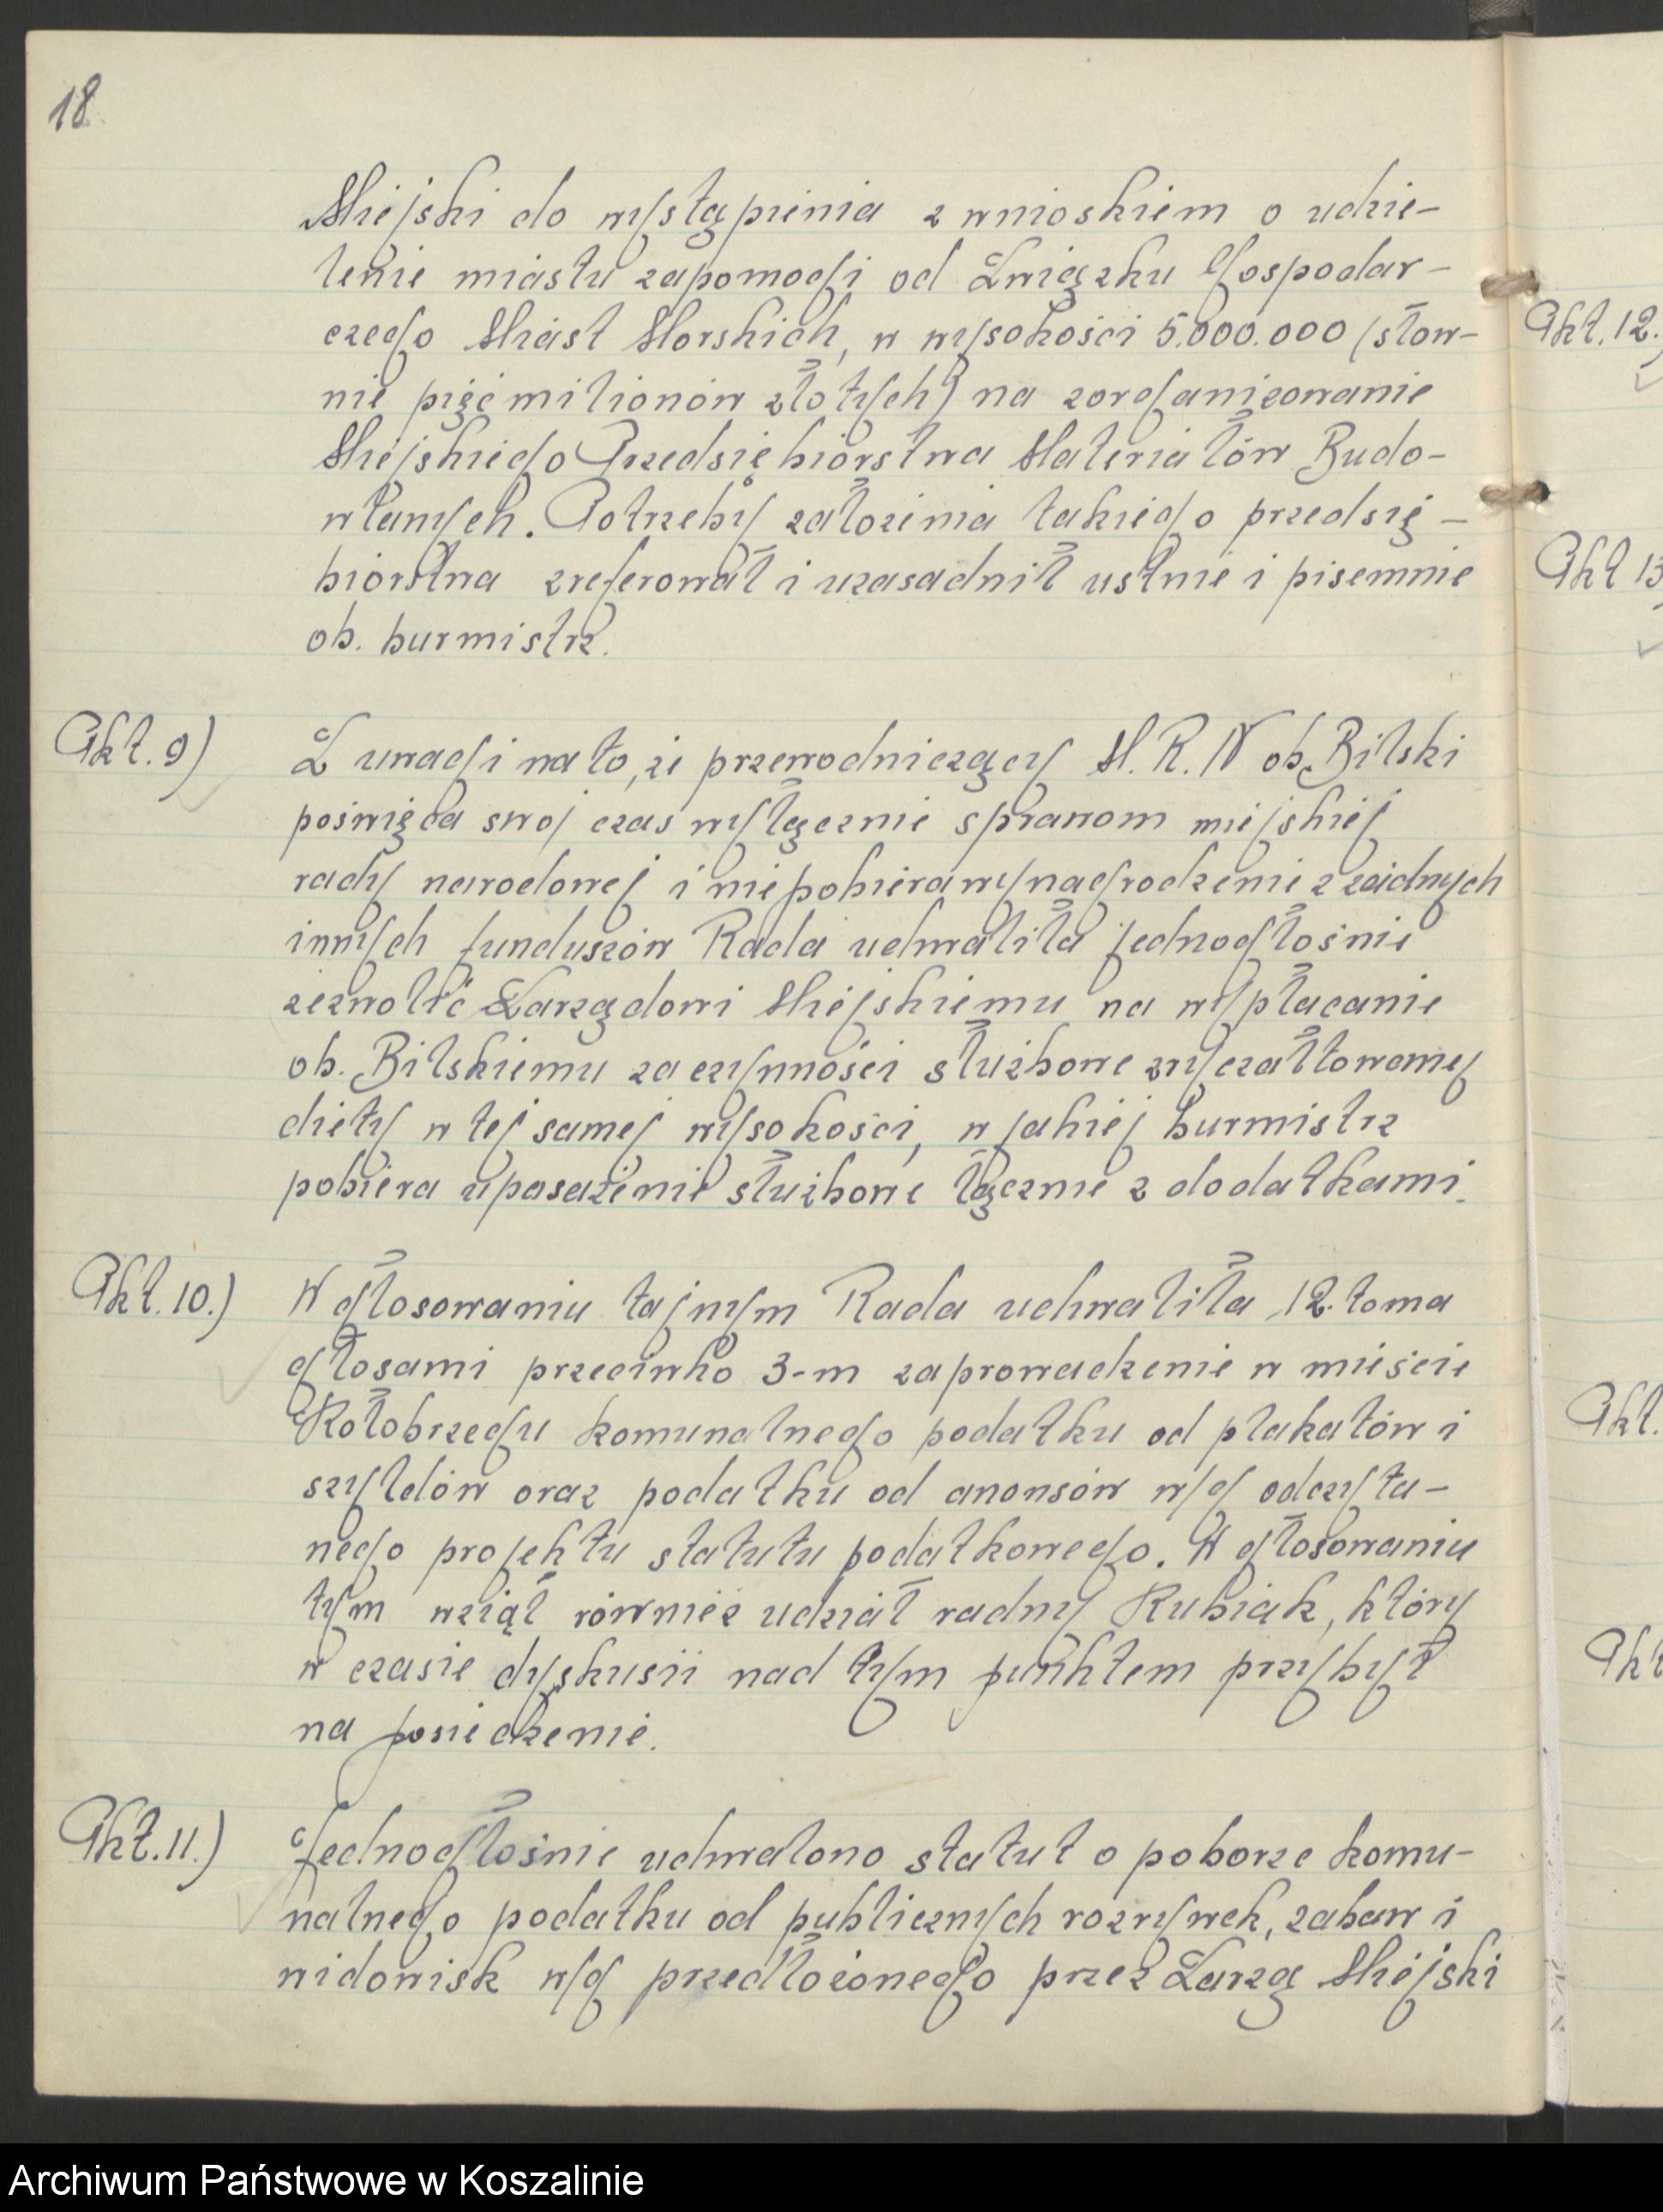 18.
Miejski do wystąpienia z wnioskiem o udzie-
lenie miastu zapomogi od Związku Gospodar-
czego Miast Morskich, w wysokości 5.000.000 (słow-
nie pięć milionów złotych) na zorganizowanie
Miejskiego Przedsiębiorstwa Materiałów Budo-
wlanych. Potrzeby założenia takiego przedsię-
biorstwa zreferował i uzasadnił ustnie i pisemnie
ob. burmistrz.
Pkt. 9) Z uwagi na to, że przewodniczący M. R. N ob. Bilski
poświęca swoj czas wyłącznie sprawom miejskiej
rady narodowej i nie pobiera wynagrodzenie z żadnych
innych funduszów Rada uchwaliła jednogłośnie
zezwolić Zarządowi Miejskiemu na wypłacanie
ob. Bilskiemu za czynności służbowe zryczałtowanej
diety w tej samej wysokości, w jakiej burmistrz
pobiera uposażenie służbowe łącznie z dodatkami.
Pkt. 10.) W głosowaniu tajnym Rada uchwaliła 12.toma
głosami przeciwko 3-m zaprowadzenie w mieście
Kołobrzegu komunalnego podatku od plakatów i
szyldów oraz podatku od anonsów w/g odczyta-
nego projektu statutu podatkowego. W głosowaniu
tym wziął również udział radny Kubiak, który
w czasie dyskusii nad tym punktem przybył
na posiedzenie.
Pkt. 11.) Jednogłośnie uchwalono statut o poborze komu-
nalnego podatku od publicznych rozrywek, zabaw i
widowisk w/g przedłożonego przez Zarzą Miejski
Pkt. 12.)
Pkt 13
Pkt.
Pkt
Archiwum Państwowe w Koszalinie